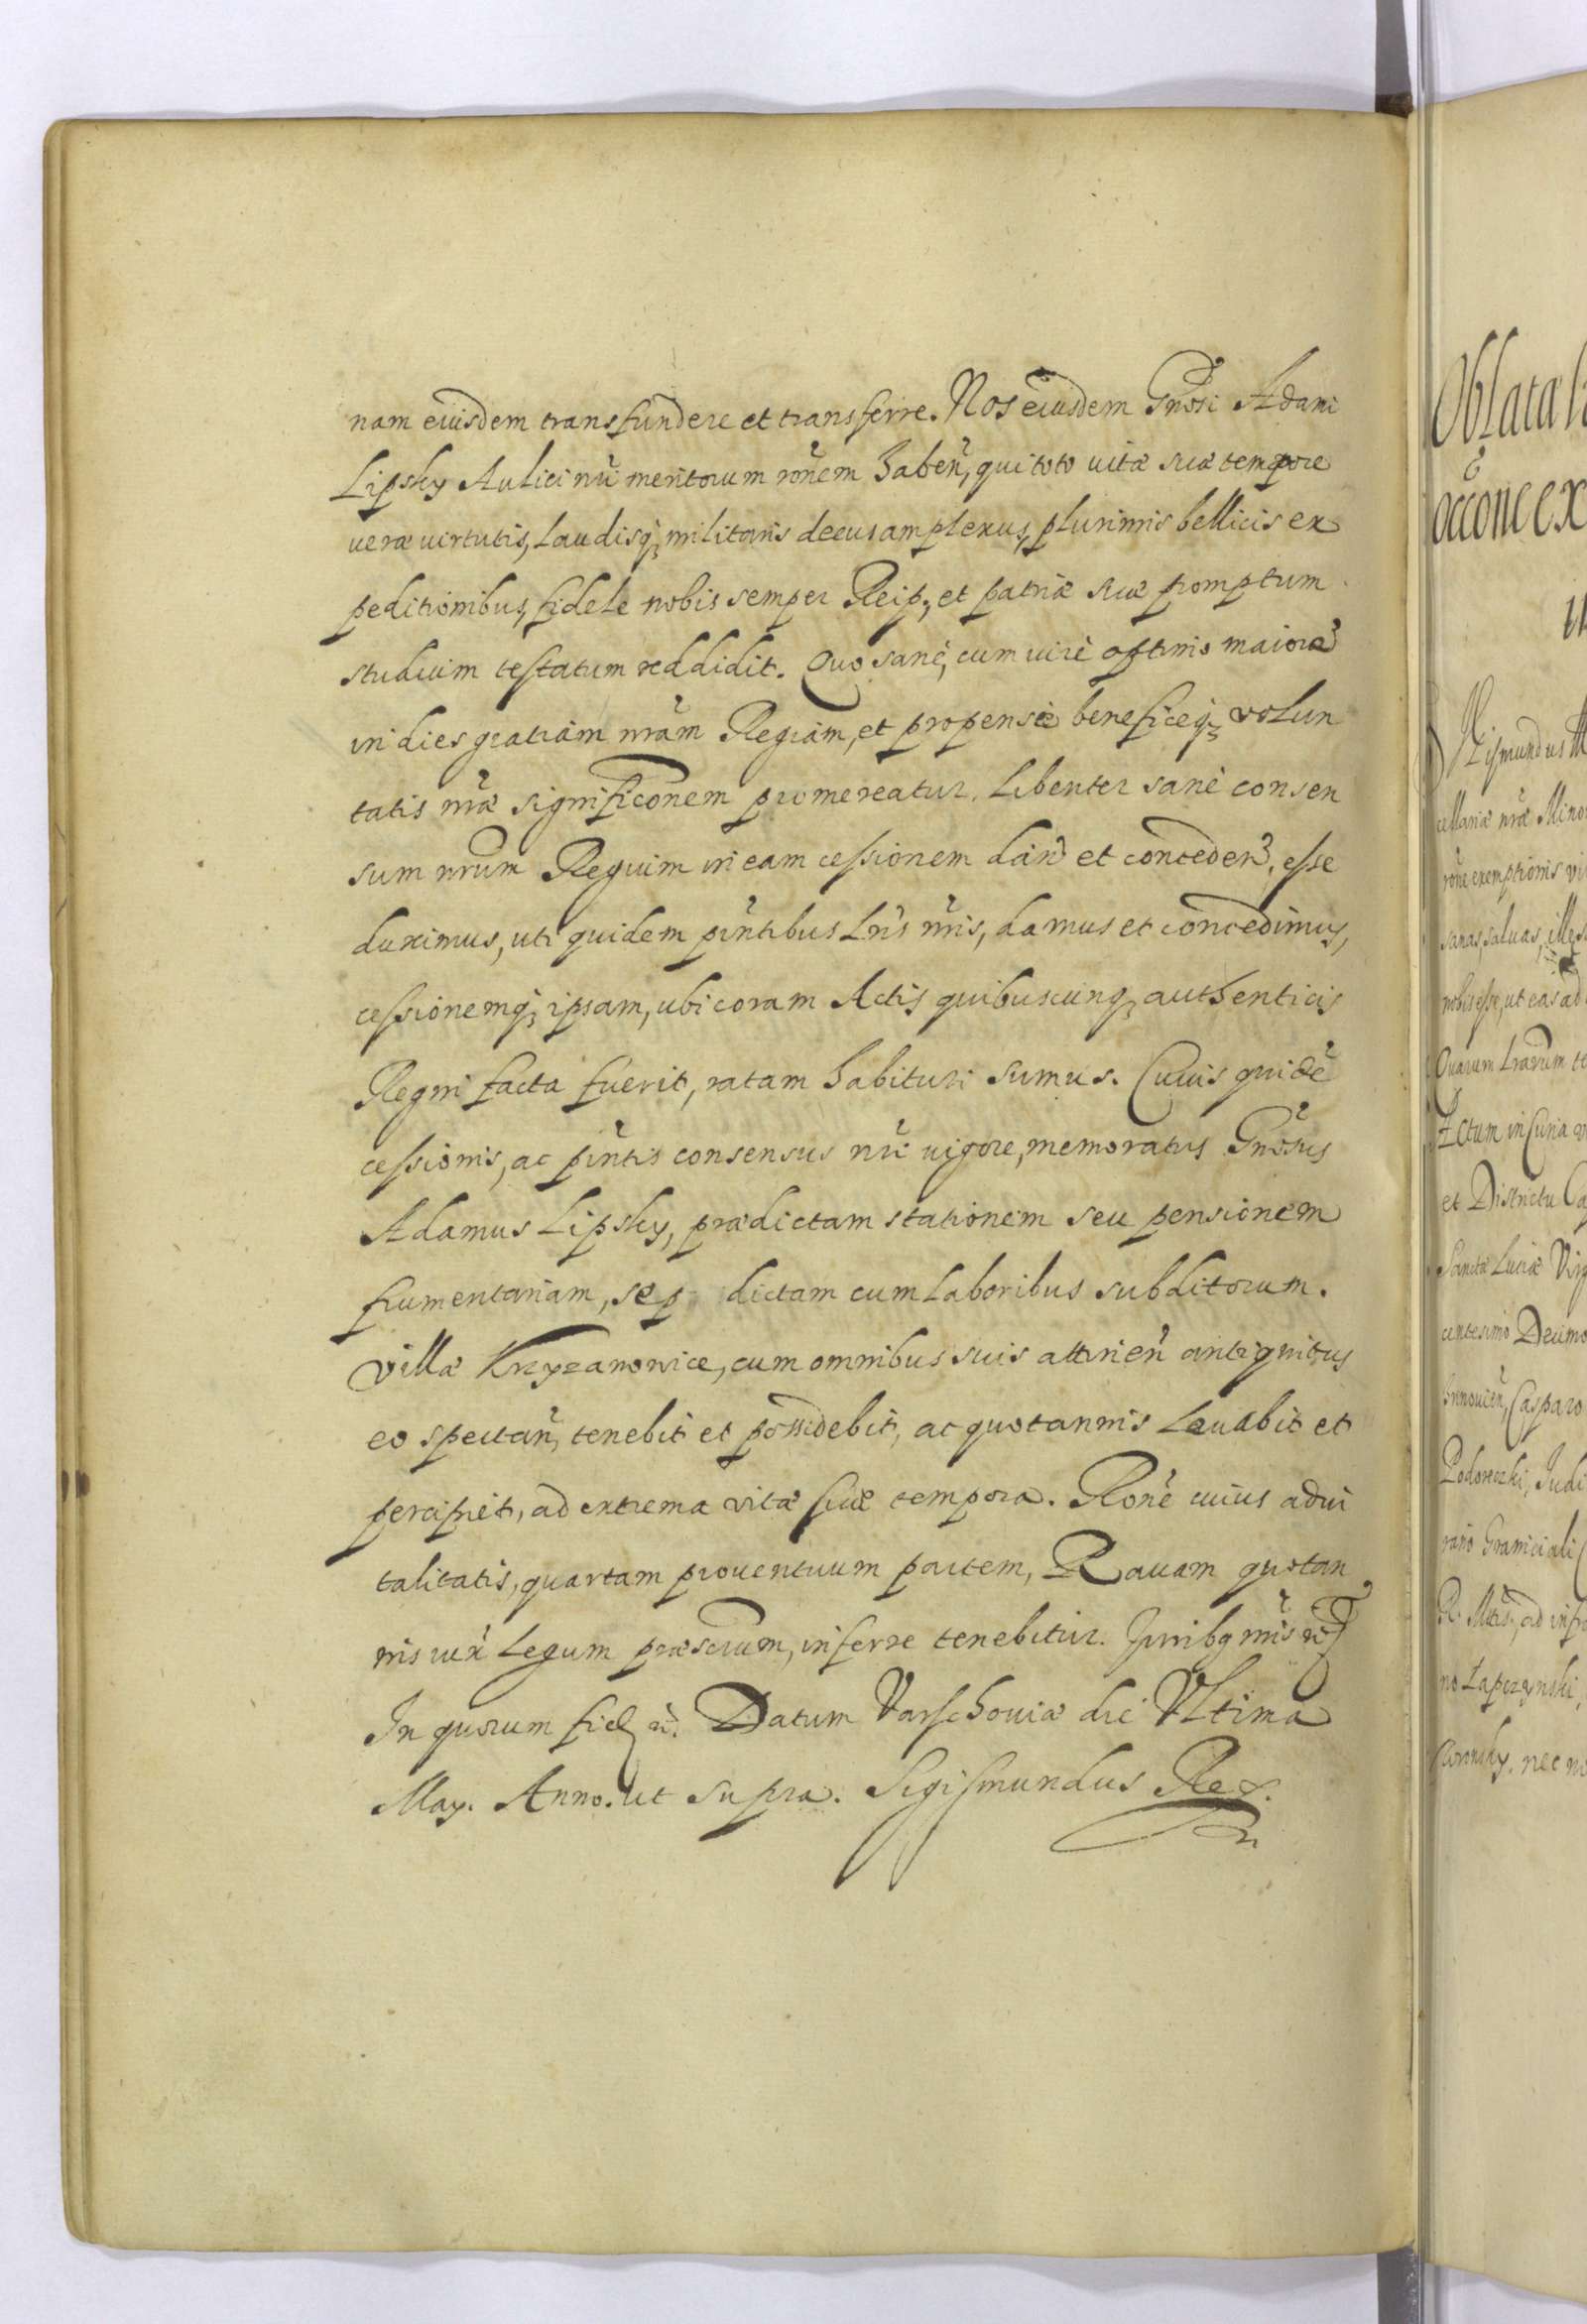 nam eiusdem transfundere et transferre. Nos eiusdem Gnosi Adami
Lipsky Aulici nri meritorum ronem haben, qui toto uitæ suæ tempore
ueræ uirtutis, laudisq; militaris decus amplexus, plurimis bellicis ex
peditionibus, fidele nobis semper Reip; et patriæ suæ promptum
studium testatum reddidit. Quo sanè, cum uirè optimo maiorē
in dies gratiam nram Regiam, et propensæ beneficeq; volun
tatis nræ significonem promereatur. Libenter sanè consen
sum nrum Regium in eam cessionem dan et conceden, esse
duximus, uti quidem pntibus Lris nris, damus et concedimus,
cessionemq; ipsam, ubi coram Actis quibuscunq; authenticis
Regni facta fuerit, ratam habituri sumus. Cuius quidē
cessionis, ac pntis consensus nri uigore, memoratus Gnosus
Adamus Lipsky, prædictam stationem seu pensionem
frumentariam, sep dictam cum laboribus subditorum.
Villæ Krzyzanowice, cum omnibus suis attinen antiquitus
eo spectan, tenebit et possidebit, ac quotannis leuabit et
percipiet, ad extrema vitæ suæ tempora. Rone cuius adui
talitatis, quartam prouentuum partem, Rauam quotan
nis iuxi Legum præscrum, inferre tenebitur. Juribq nris
In quorum fid Datum Varschouiæ die Vltima
May. Anno. ut supra. Sigismundus Rex.
Oblata
occone ex
Sigismundus
cellariæ nræ Mino
rone exemptionis
sanas, saluas, illes
nobis esse, ut eas ad
Quarum Lrarum te
Actum in Curia
et Districtu Ca
Sanctæ Luciæ Virg
centesimo Decimo
Casparo
Podoreczki, Judi
Graniciali
R. Mtis, ad infr
no Łapczynski,
nec no